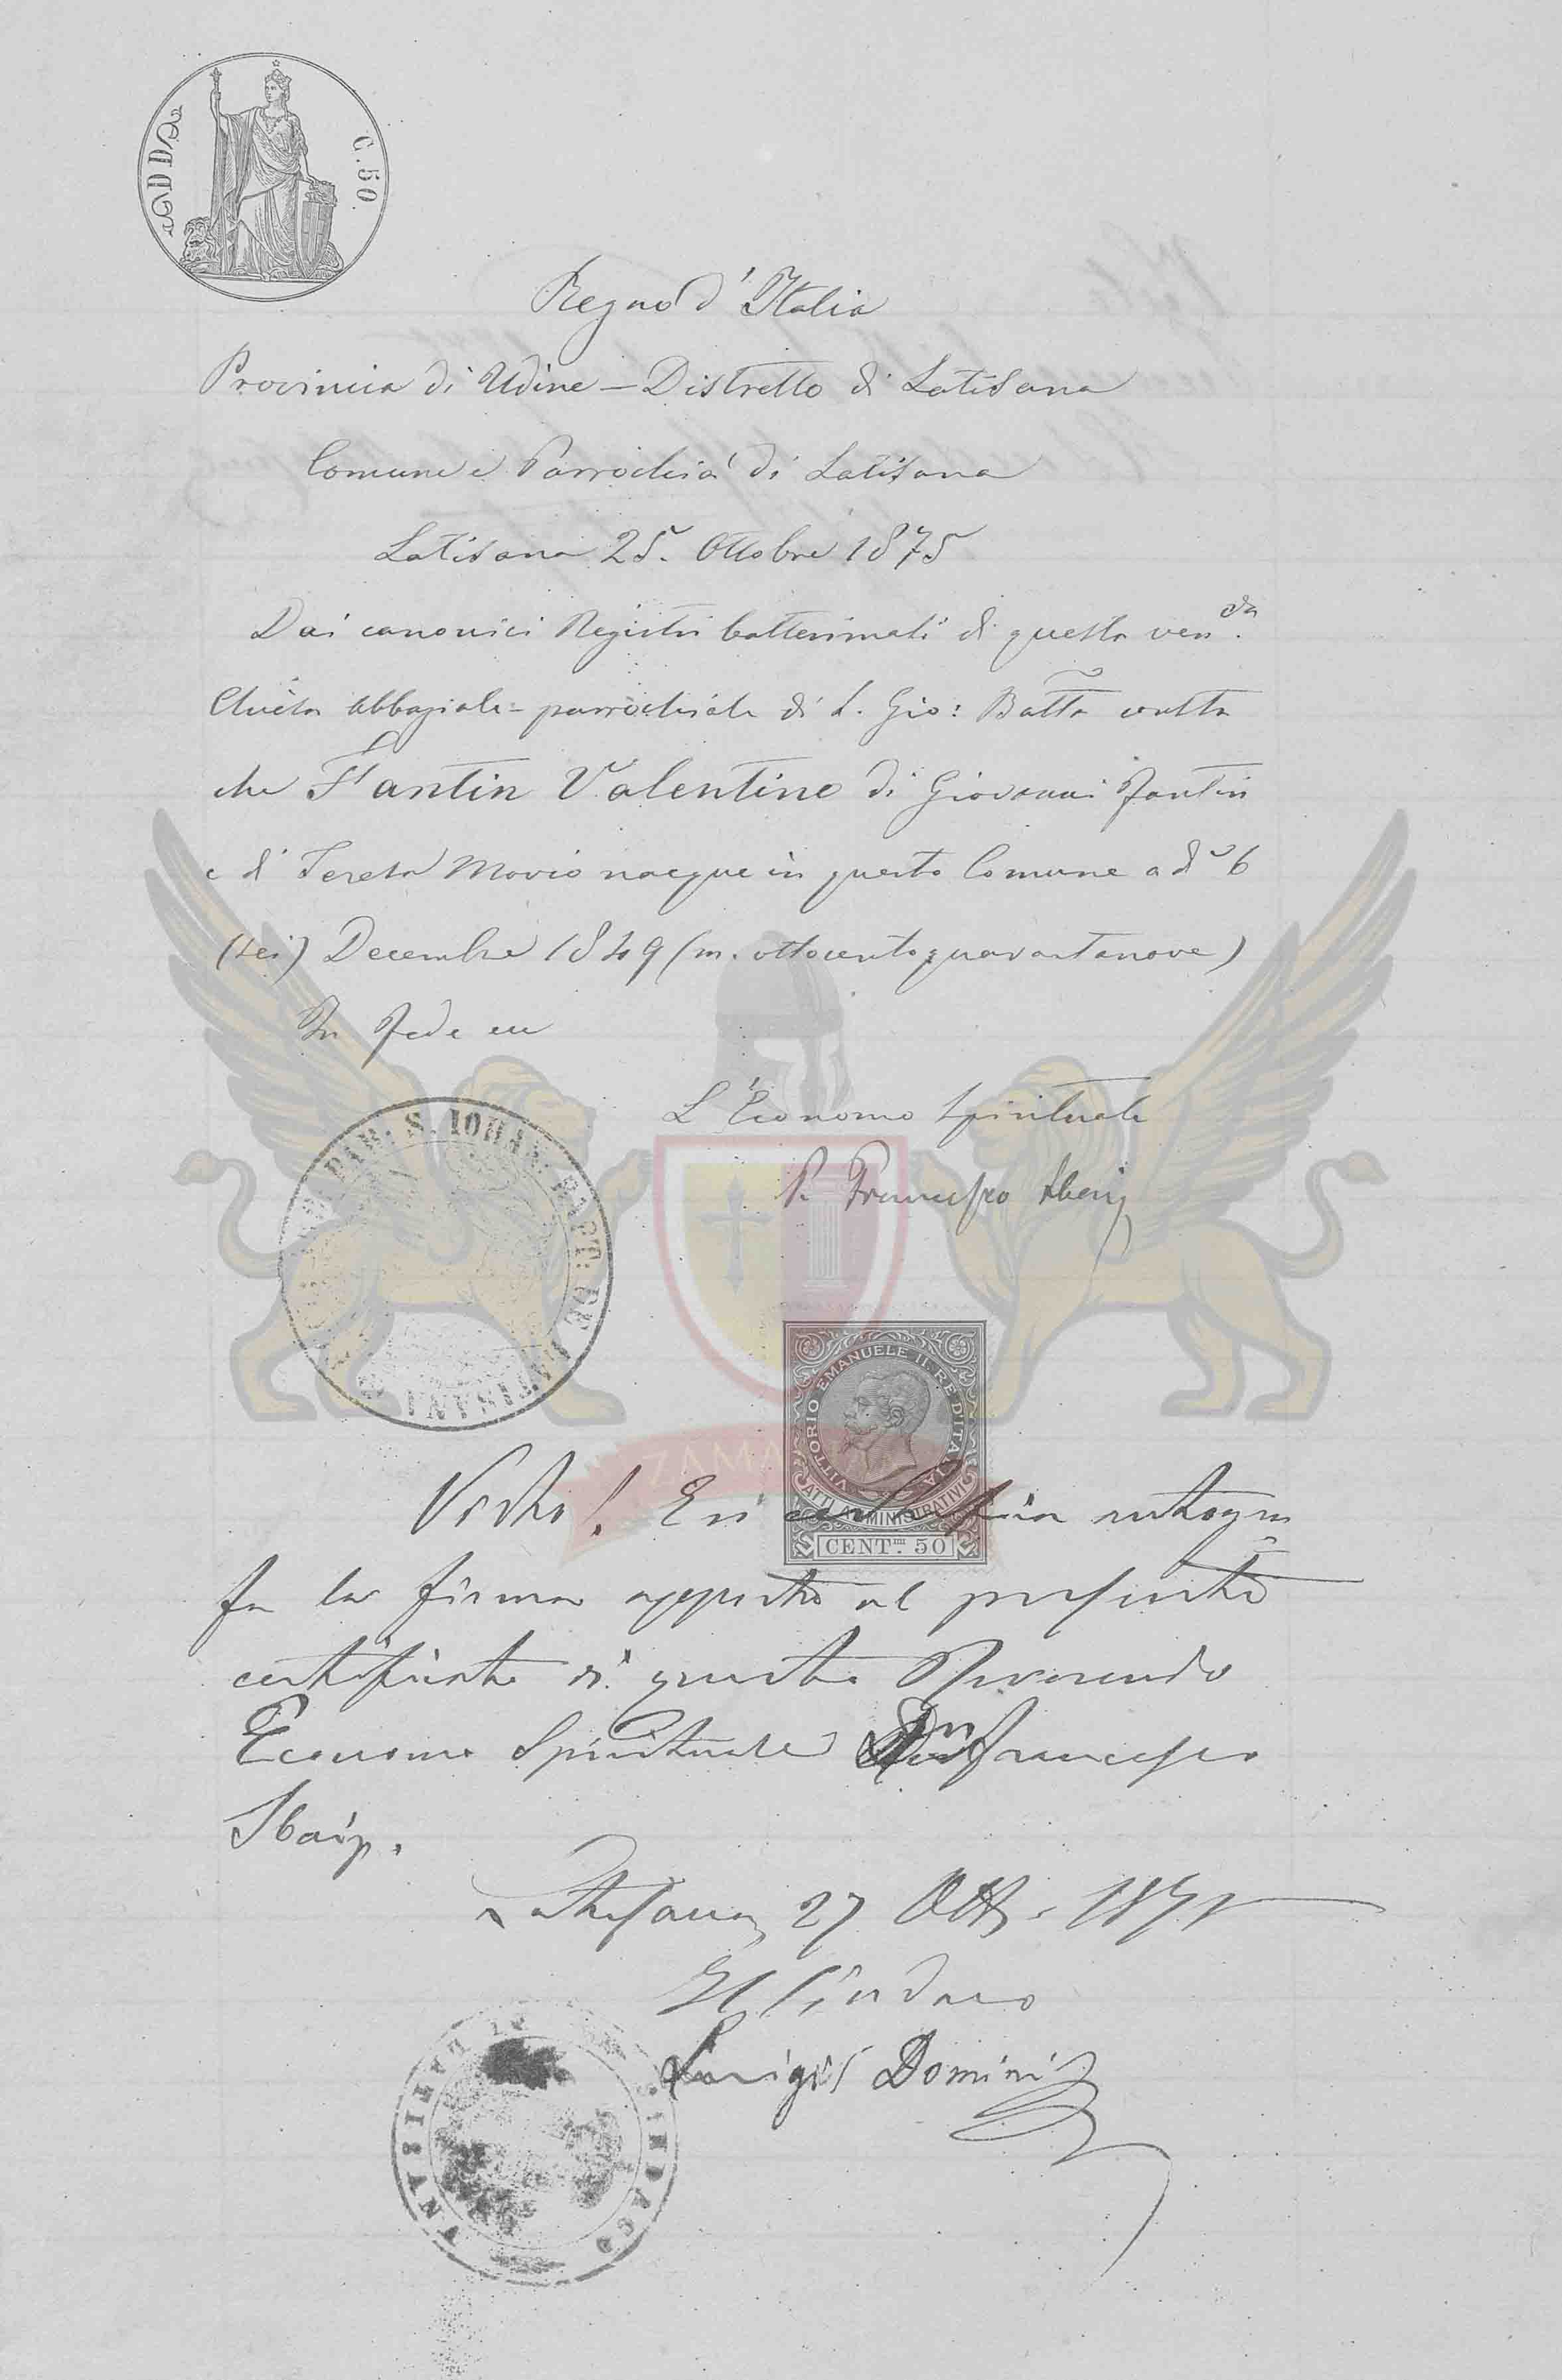 C. 50
Regno d' Italia
Provincia di Udine – Distretto di Latisana
Comune e Parrochia di Latisana
Latisana 25. Ottobre 1875
Dai canonici Registri battesimali di questa ven.da
Chiesa Abbaziale-parrochiale di S. Gio: Batta risulta
che Fantin Valentino di Giovanni Fantin
e di Teresa Movio nacque in questo Comune a dì 6
(sei) Decembre 1849 (m. ottocentoquarantanove)
In fede
L'Economo Spirituale
P. Francesco
PAR. S. IOHAN. BAPT. DE LATISANA
VITTORIO EMANUELE II. RE D'ITALIA
ATTI AMMINISTRATIVI
CENT.mi 50
ZAMA
Visto! autogra
fa la firma apposta al presente
certificato di questo Reverendo
Economo Spirituale Don Francesco
Latisana 27 Ott. 1875
Il Sindaco
Luigi Domini
SINDACO DI LATISANA